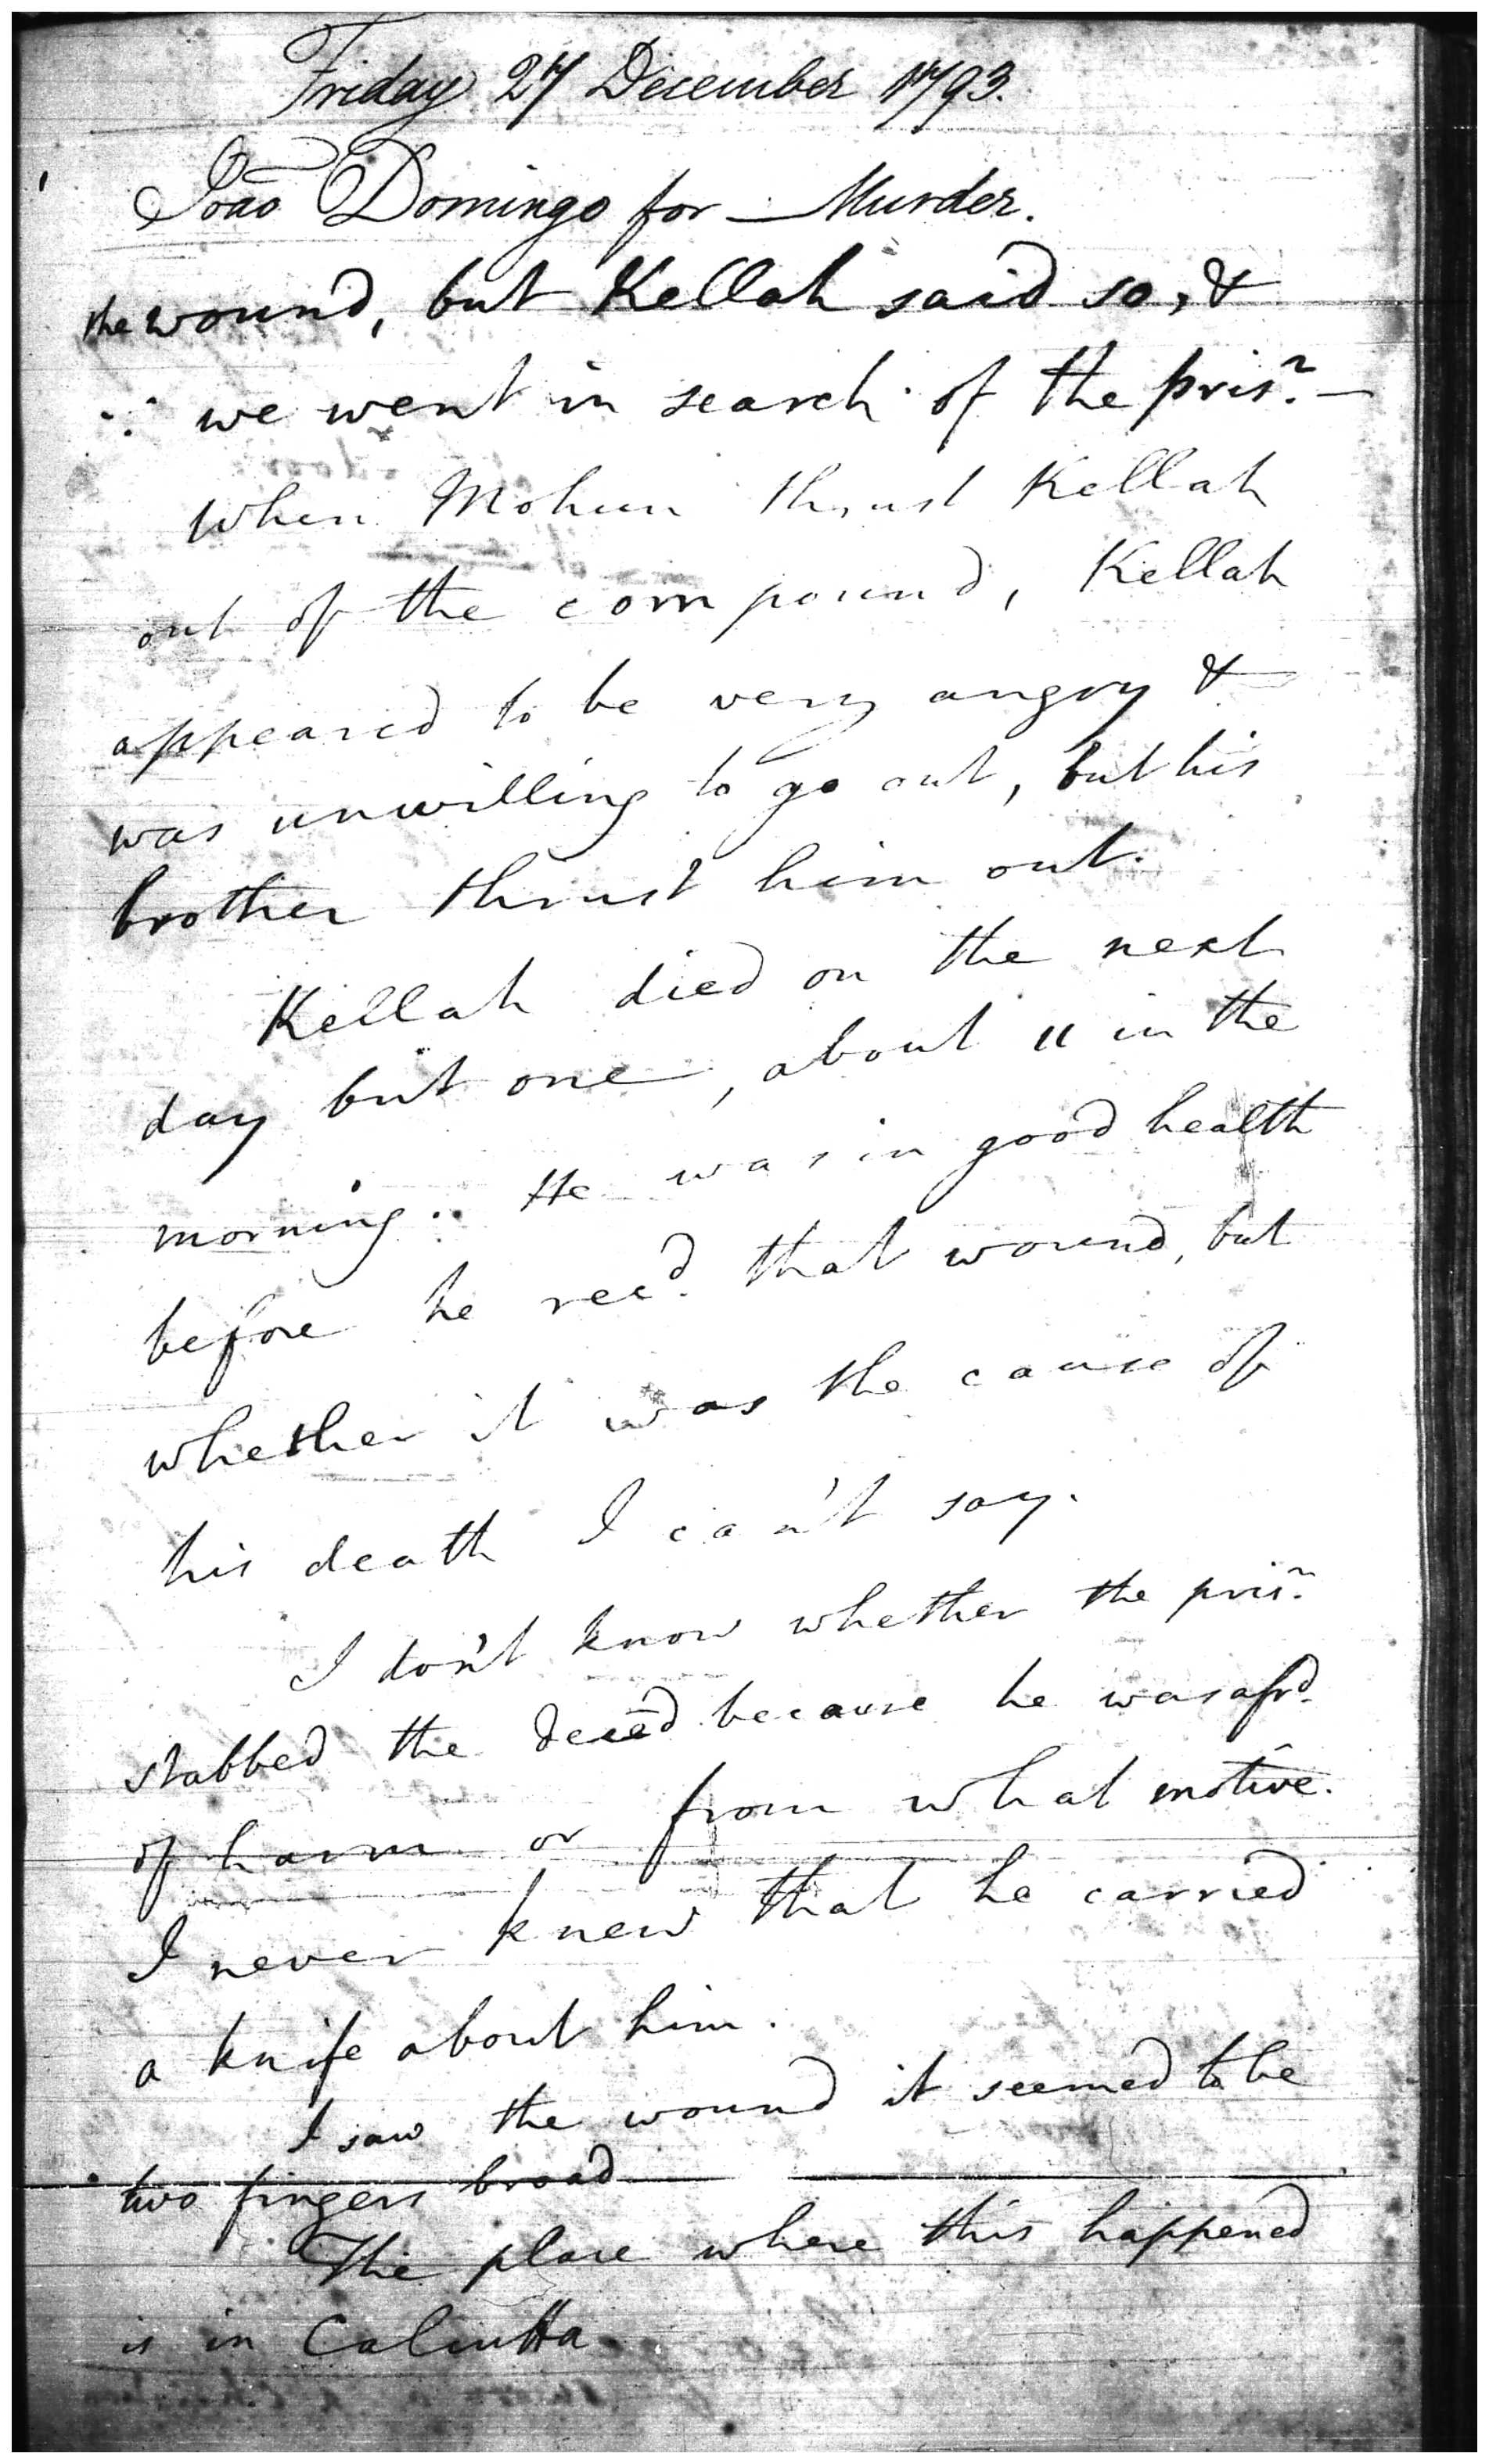 Friday 27 December 1793.
João Domingo for Murder.
the wound, but Kellah said so, &
∵ we went in search of the prisr. —
When Mohun thrust Kellah
out of the compound, Kellah
appeared to be very angry &
was unwilling to go out, but his
brother thrust him out.
Kellah died on the next
day but one, about 11 in the
morning. He was in good health
before he recd. that wound, but
whether it was the cause of
his death I can't say.
I don't know whether the prisr.
stabbed the decēd because he was afrd.
of harm or from what motive.
I never knew that he carried
a knife about him.
I saw the wound it seemed to be
two fingers broad
The place where this happened
is in Calcutta